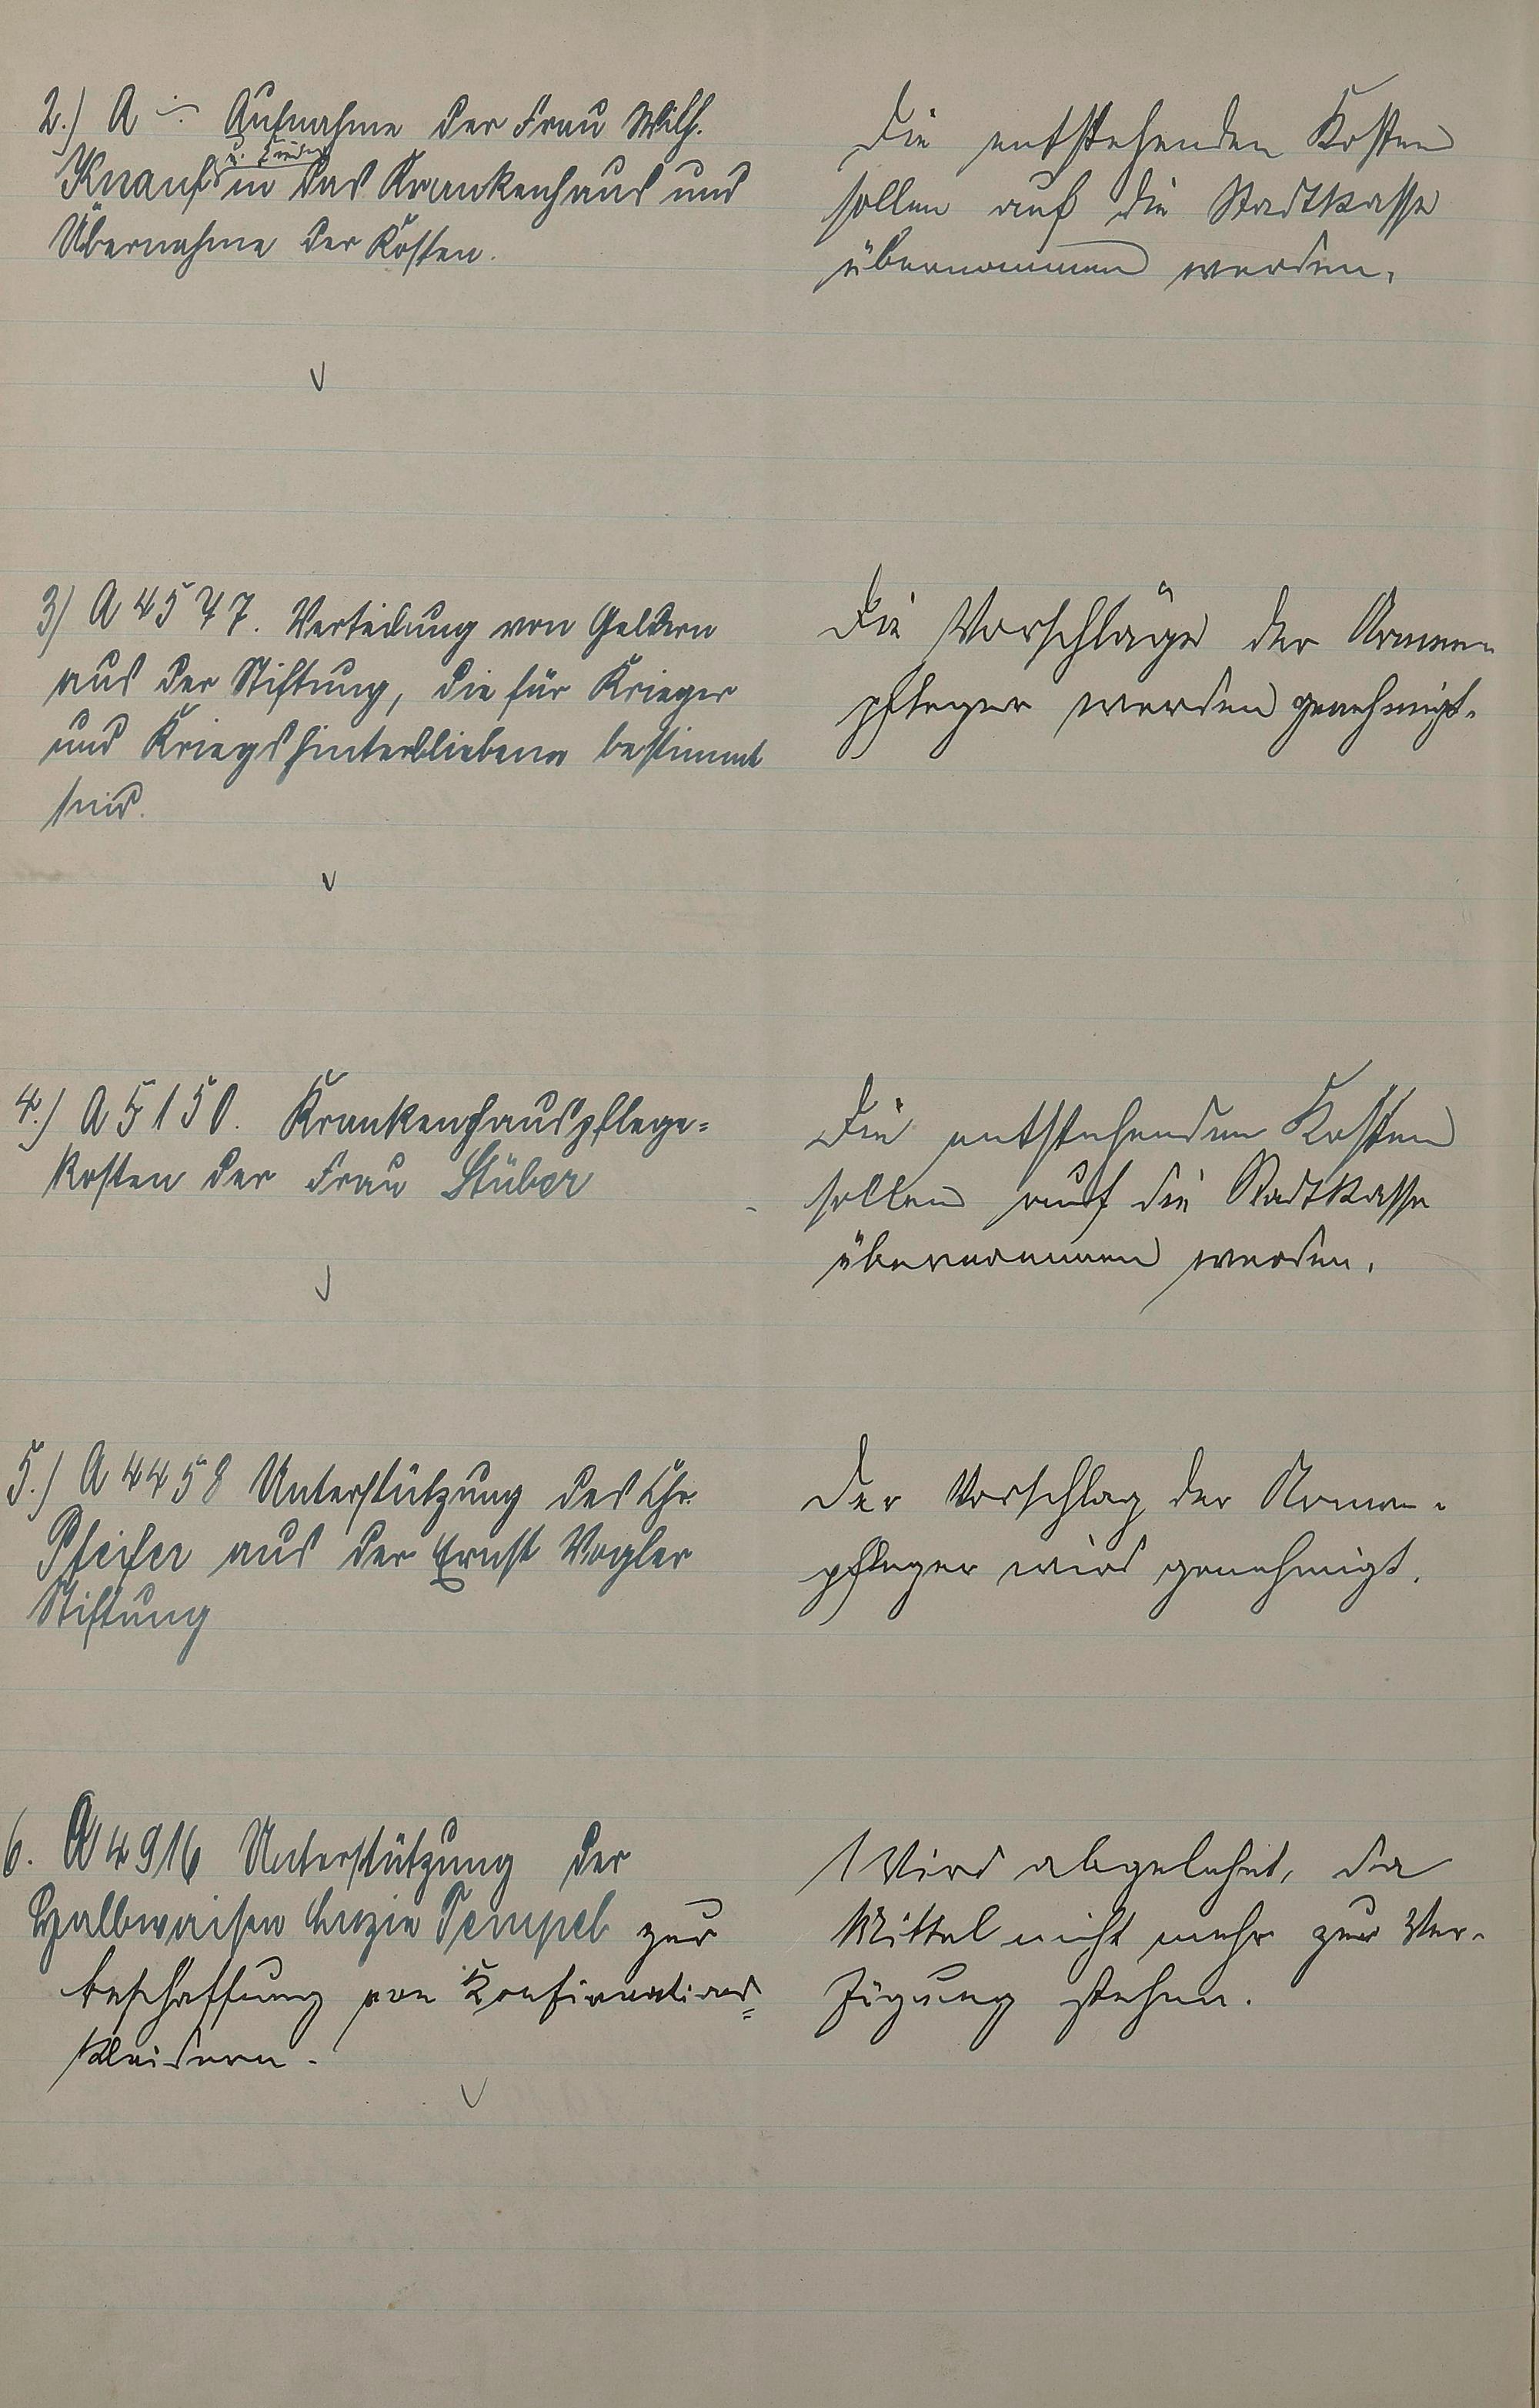 2.) A ÷ Aufnahme der Frau Wilh.
u. Kinder
Knauf in das Krankenhaus und
Übernahme der Kosten.
Die entstehenden Kosten
sollen auf die Stadtkasse
übernommen werden.
3) A 4577. Verteilung von Geldern
aus der Stiftung, die für Krieger
und Kriegshinterbliebene bestimmt
sind.
Die Vorschläge der Armen-
pfleger werden genehmigt.
4.) A 5150. Krankenhauspflege=
kosten der Frau Stüber
Die entstehenden Kosten
sollen auf die Stadtkasse
übernommen werden.
5.) A 4458 Unterstützung des Chr.
Pfeifer aus der Ernst Vogler
Stiftung
Der Vorschlag der Armen-
pfleger wird genehmigt.
6. A 4916 Unterstützung der
Halbwaisen Luzie Tempel zur
Beschaffung von Konfirmations=
kleidern.
Wird abgelehnt, da
Mittel nicht mehr zur Ver-
fügung stehen.